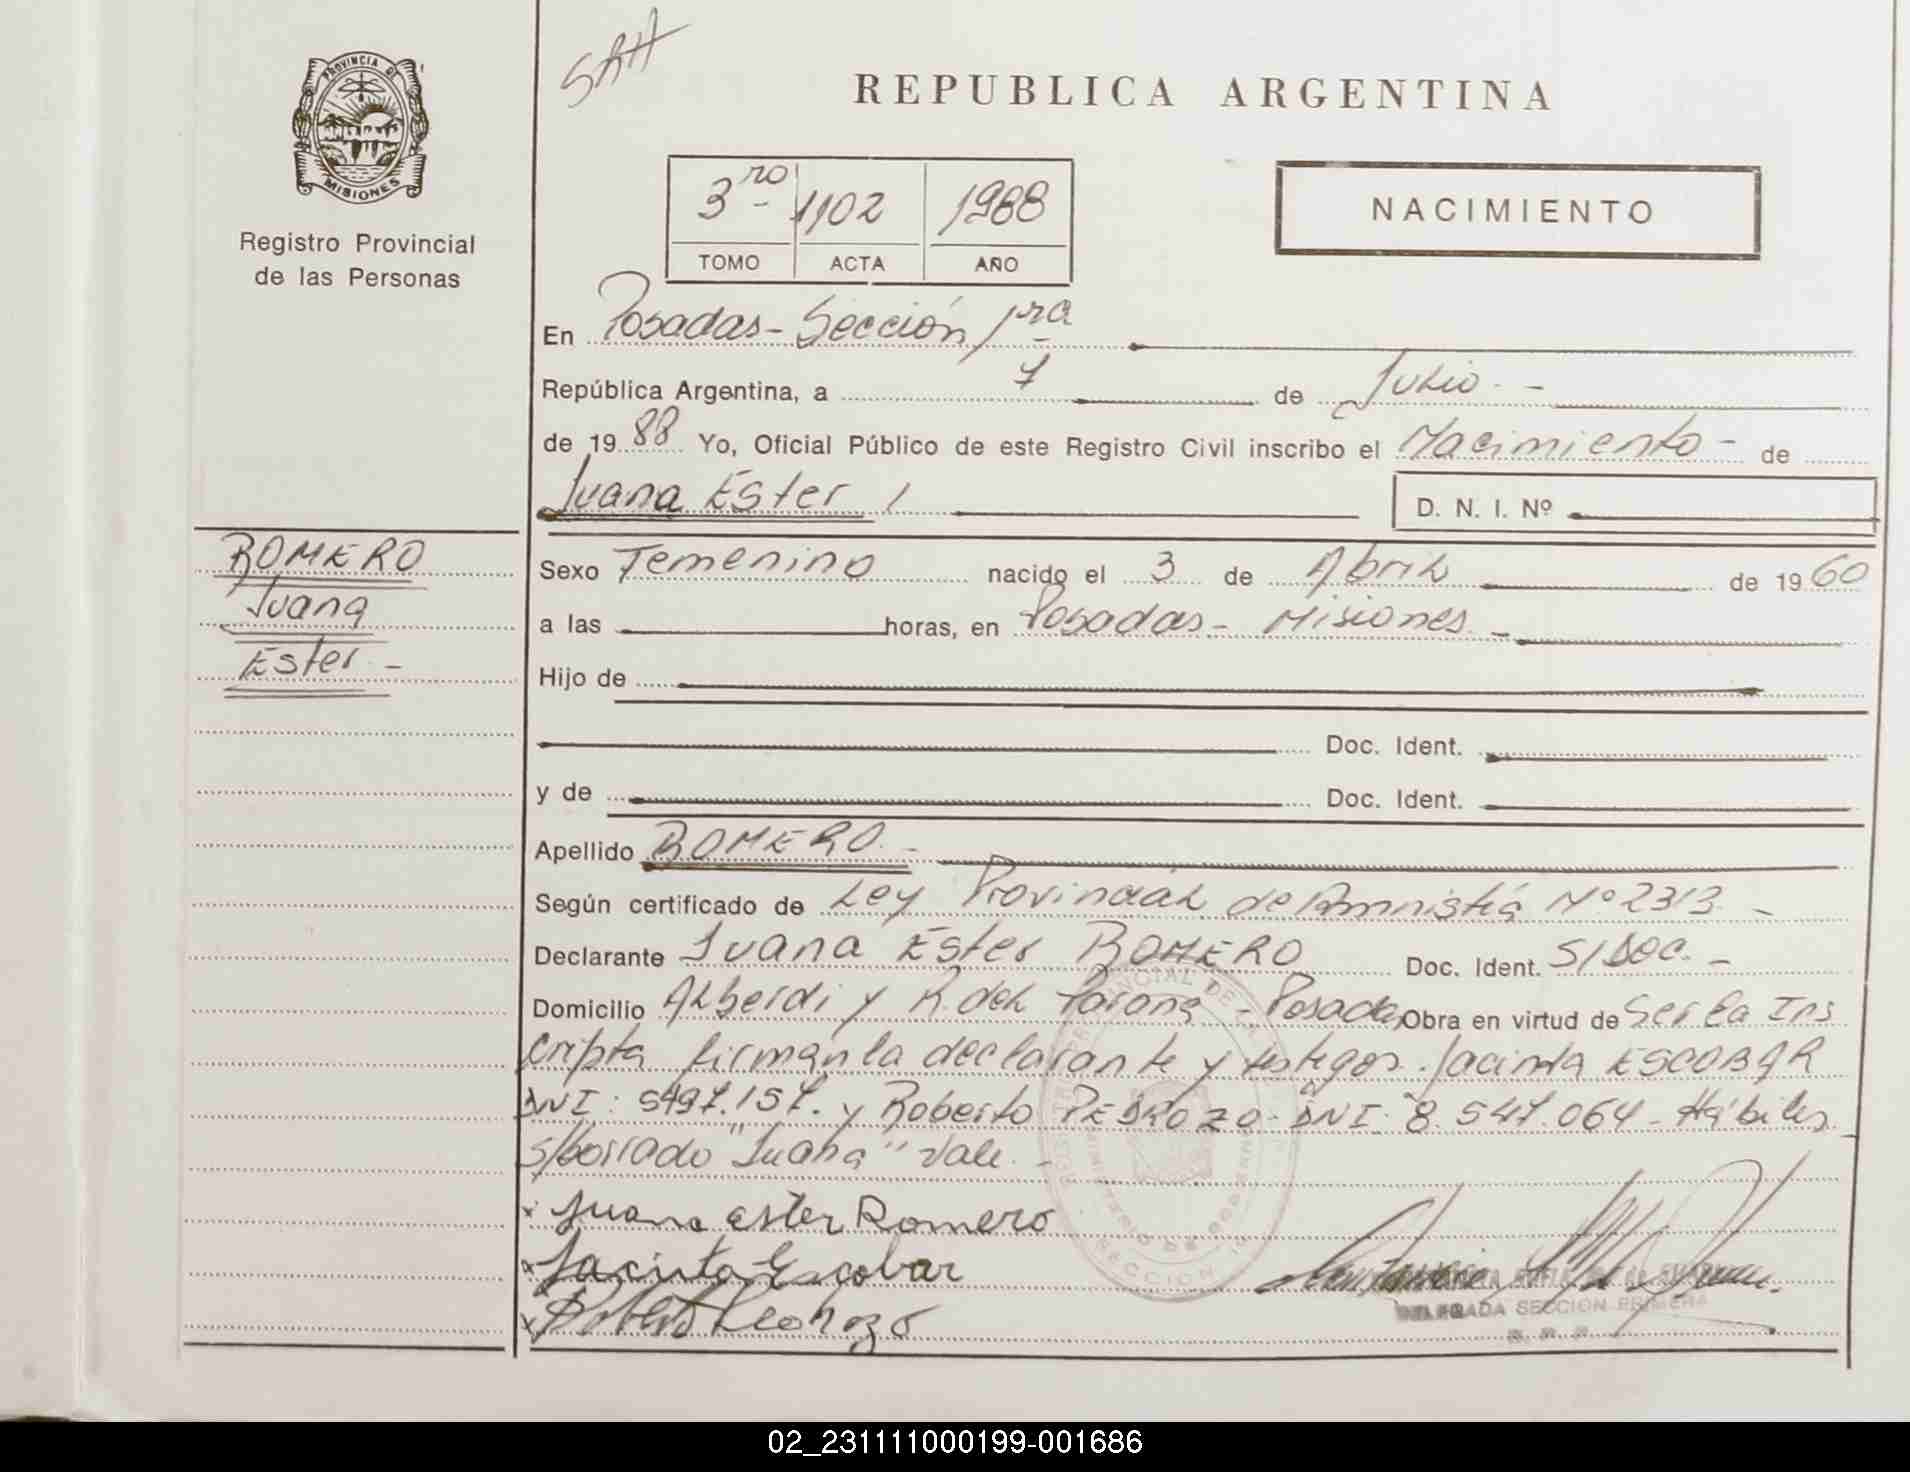 SAH
REPUBLICA ARGENTINA
PROVINCIA DE
MISIONES
Registro Provincial
de las Personas
3ro - 1102 1988
TOMO ACTA AÑO
NACIMIENTO
En Posadas - Sección 1ra -
República Argentina, a 7 de Julio. -
de 1988 Yo, Oficial Público de este Registro Civil inscribo el Nacimiento - de
Juana Ester /
D. N. I. Nº
ROMERO
Juana
Ester. -
Sexo Femenino nacido el 3 de Abril de 1960
a las horas, en Posadas - Misiones -
Hijo de
Doc. Ident.
y de Doc. Ident.
Apellido ROMERO. -
Según certificado de Ley Provincial de Amnistía Nº 2313 -
Declarante Juana Ester ROMERO Doc. Ident. S/Doc. -
Domicilio Alberdi y R. del Paraná - Posadas Obra en virtud de Ser la Ins
cripta firman la declarante y testigos. Jacinta ESCOBAR
DNI: 5497.157. y Roberto PEDROZO - DNI: 8.547.064 - Hábiles
s/borrado "Juana" Vale. -
x Juana ester Romero
x Jacinta Escobar
x Roberto Pedrozo
DELEGADA SECCION PRIMERA
R. P. P.
02_231111000199-001686